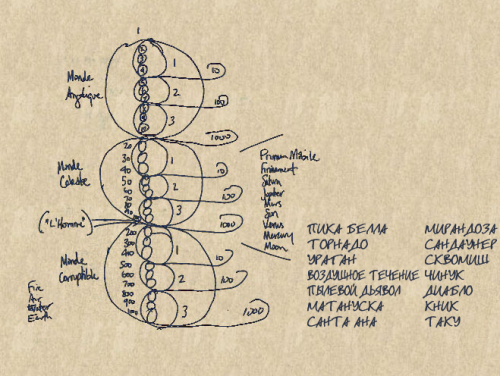 1
Monde
Angelique
1
10
2
100
3
1000
20
30
40
50
60
70
80
90
Monde
Celeste
1
10
2
100
3
1000
("L'Homme")
Primum Mobile
Firmament
Saturn
Jupiter
Mars
Sun
Venus
Mercury
Moon
200
300
400
500
600
700
800
900
1000
Monde
Corruptible
1
10
2
100
3
1000
Fire
Air
Water
Earth
ПИКА БЕЛЛА МИРАНДОЗА
ТОРНАДО САНДАУНЕР
УРАГАН СКВОМИШ
ВОЗДУШНОЕ ТЕЧЕНИЕ ЧИНУК
ПЫЛЕВОЙ ДЬЯВОЛ ДИАБЛО
МАТАНУСКА КНИК
САНТА АНА ТАКУ